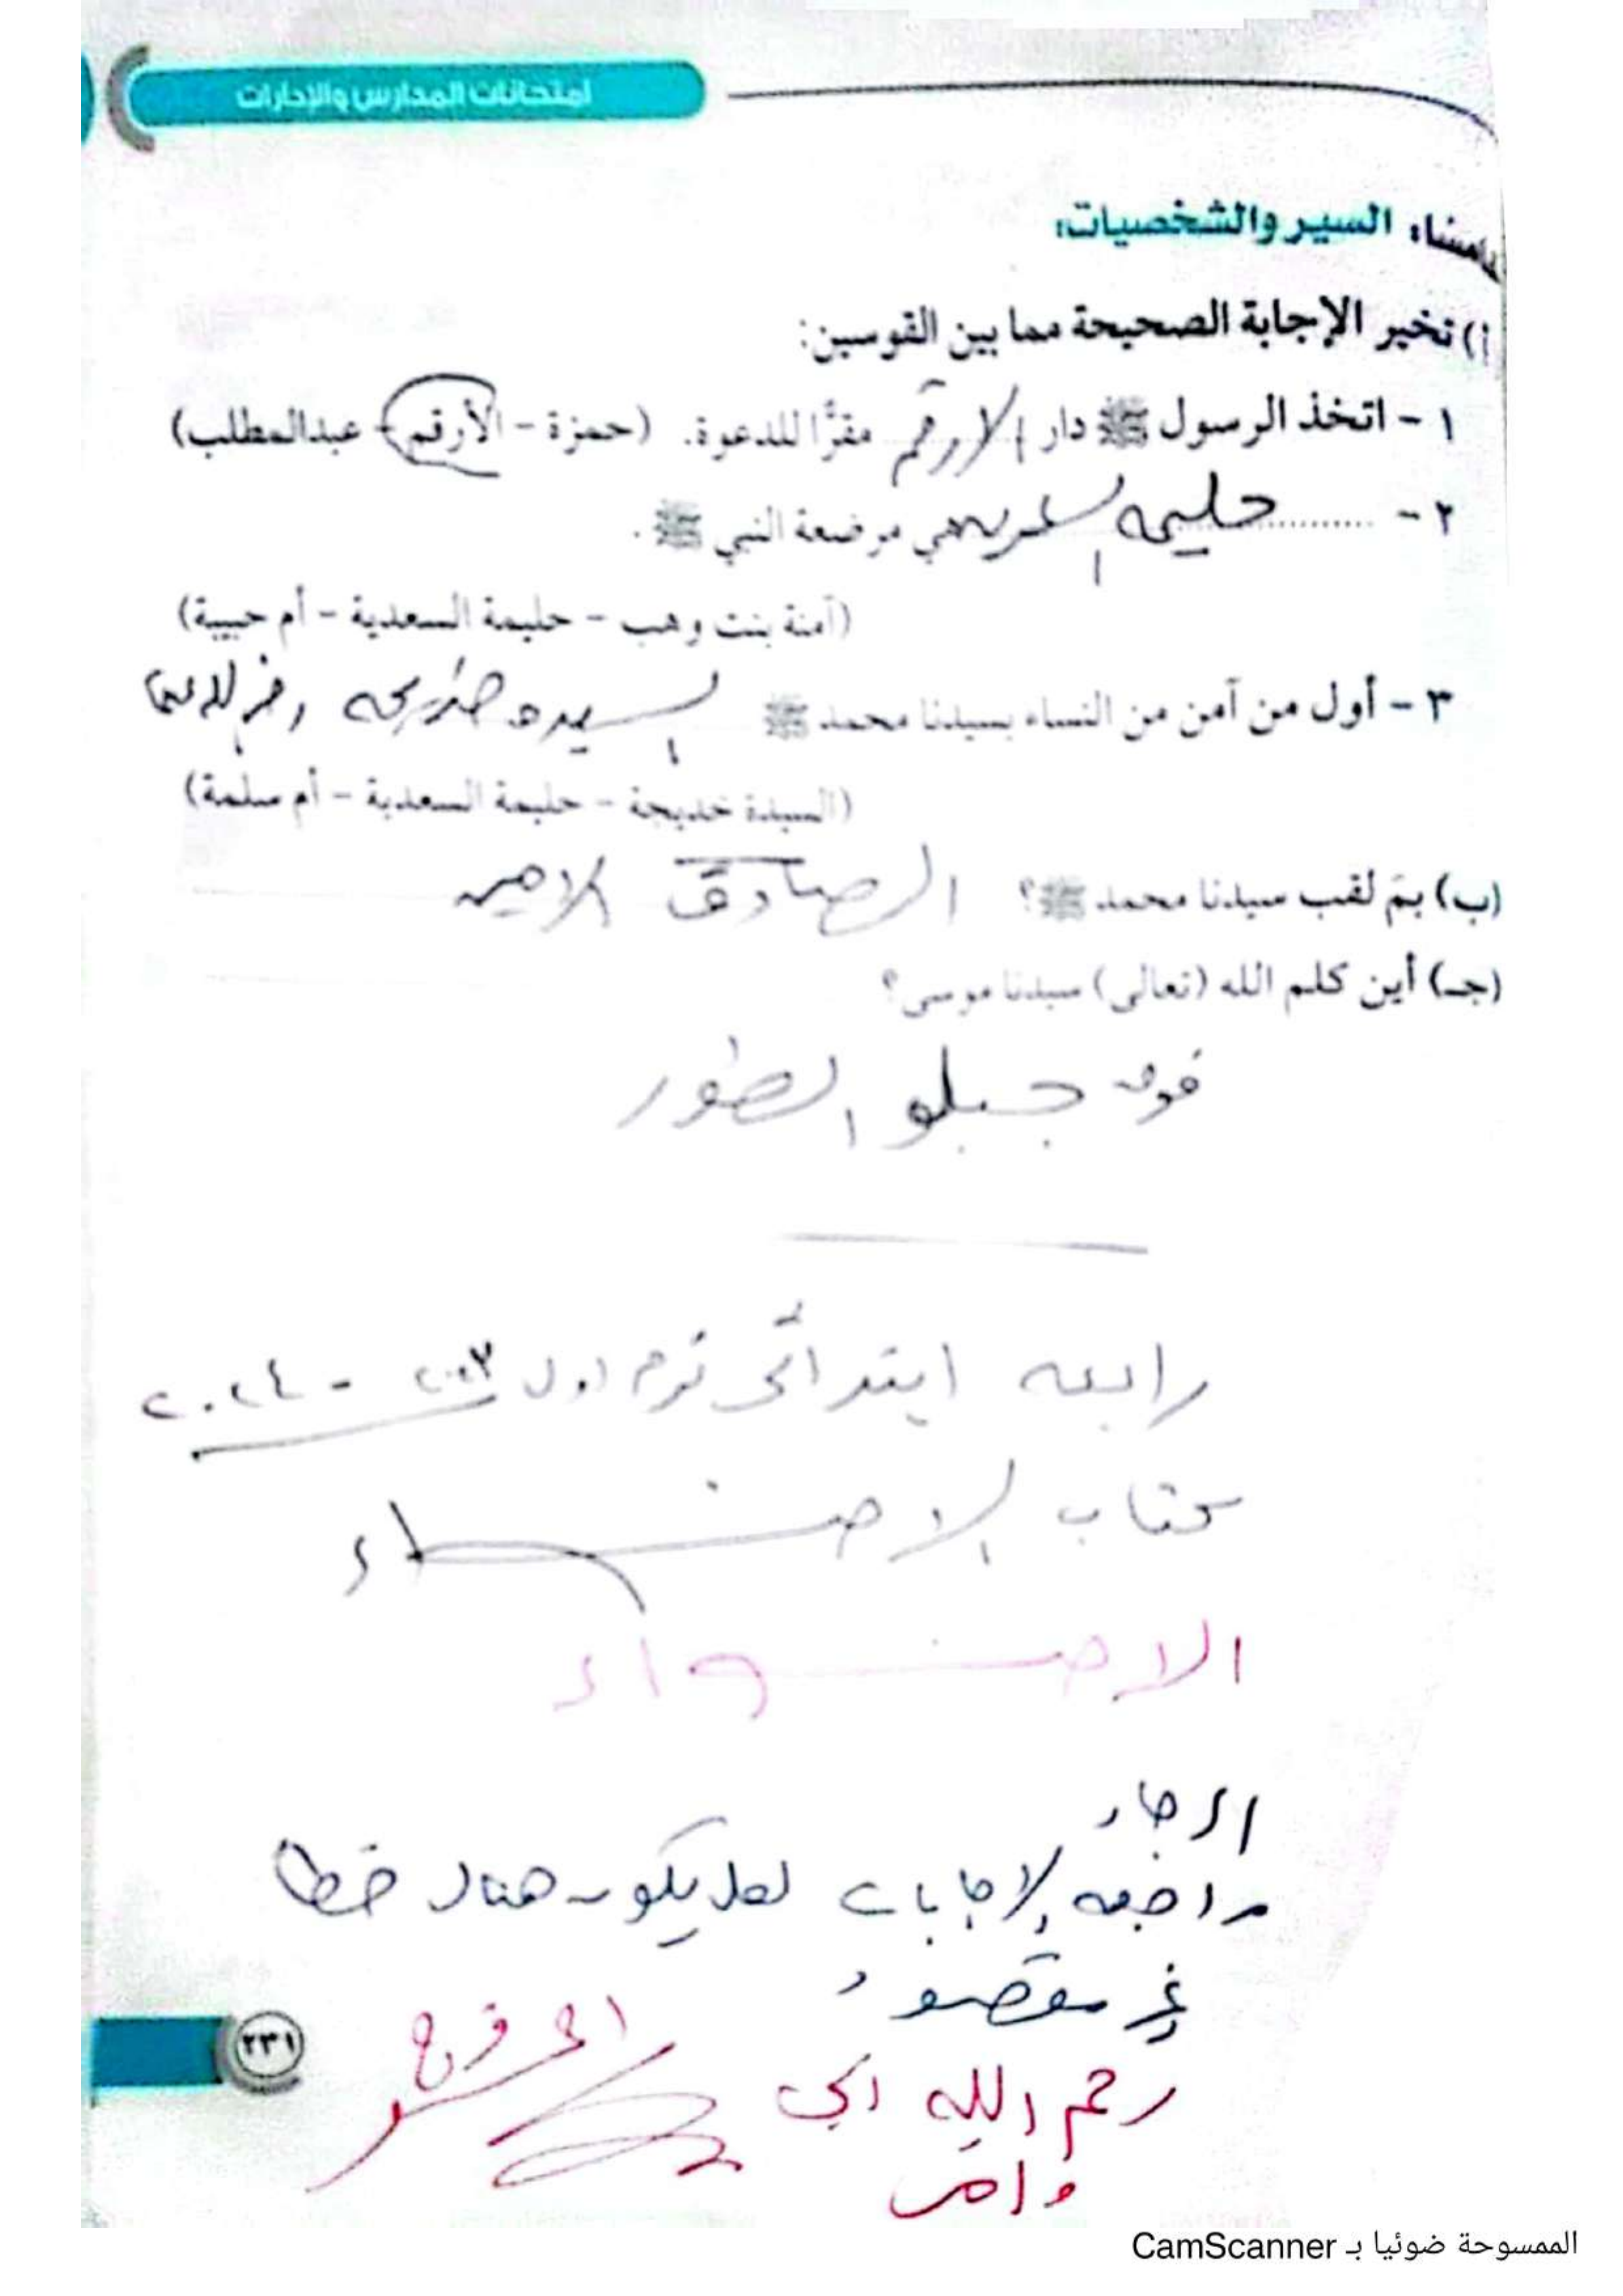 امتحانات المدارس والإدارات
خامسًا: السير والشخصيات:
(أ) تخير الإجابة الصحيحة مما بين القوسين:
١ - اتخذ الرسول ﷺ دار الارقم مقرًّا للدعوة. (حمزة - الأرقم - عبدالمطلب)
٢ - حليمه السعديه هي مرضعة النبي ﷺ.
(آمنة بنت وهب - حليمة السعدية - أم حبيبة)
٣ - أول من آمن من النساء بسيدنا محمد ﷺ السيده خديجه رضي الله عنها
(السيدة خديجة - حليمة السعدية - أم سلمة)
(ب) بمَ لقب سيدنا محمد ﷺ؟ الصادق الامين
(جـ) أين كلم الله (تعالى) سيدنا موسى؟
فوق جبل الطور
رابعه ابتدائى ترم اول ٢٠٢٣ - ٢٠٢٤
كتاب الاضواء
الاضواء
الرجاء
مراجعه الاجابات لعل يكون هناك خطا
غير مقصود
رحم الله ابي
وامي
٢٣١
الممسوحة ضوئيا بـ CamScanner